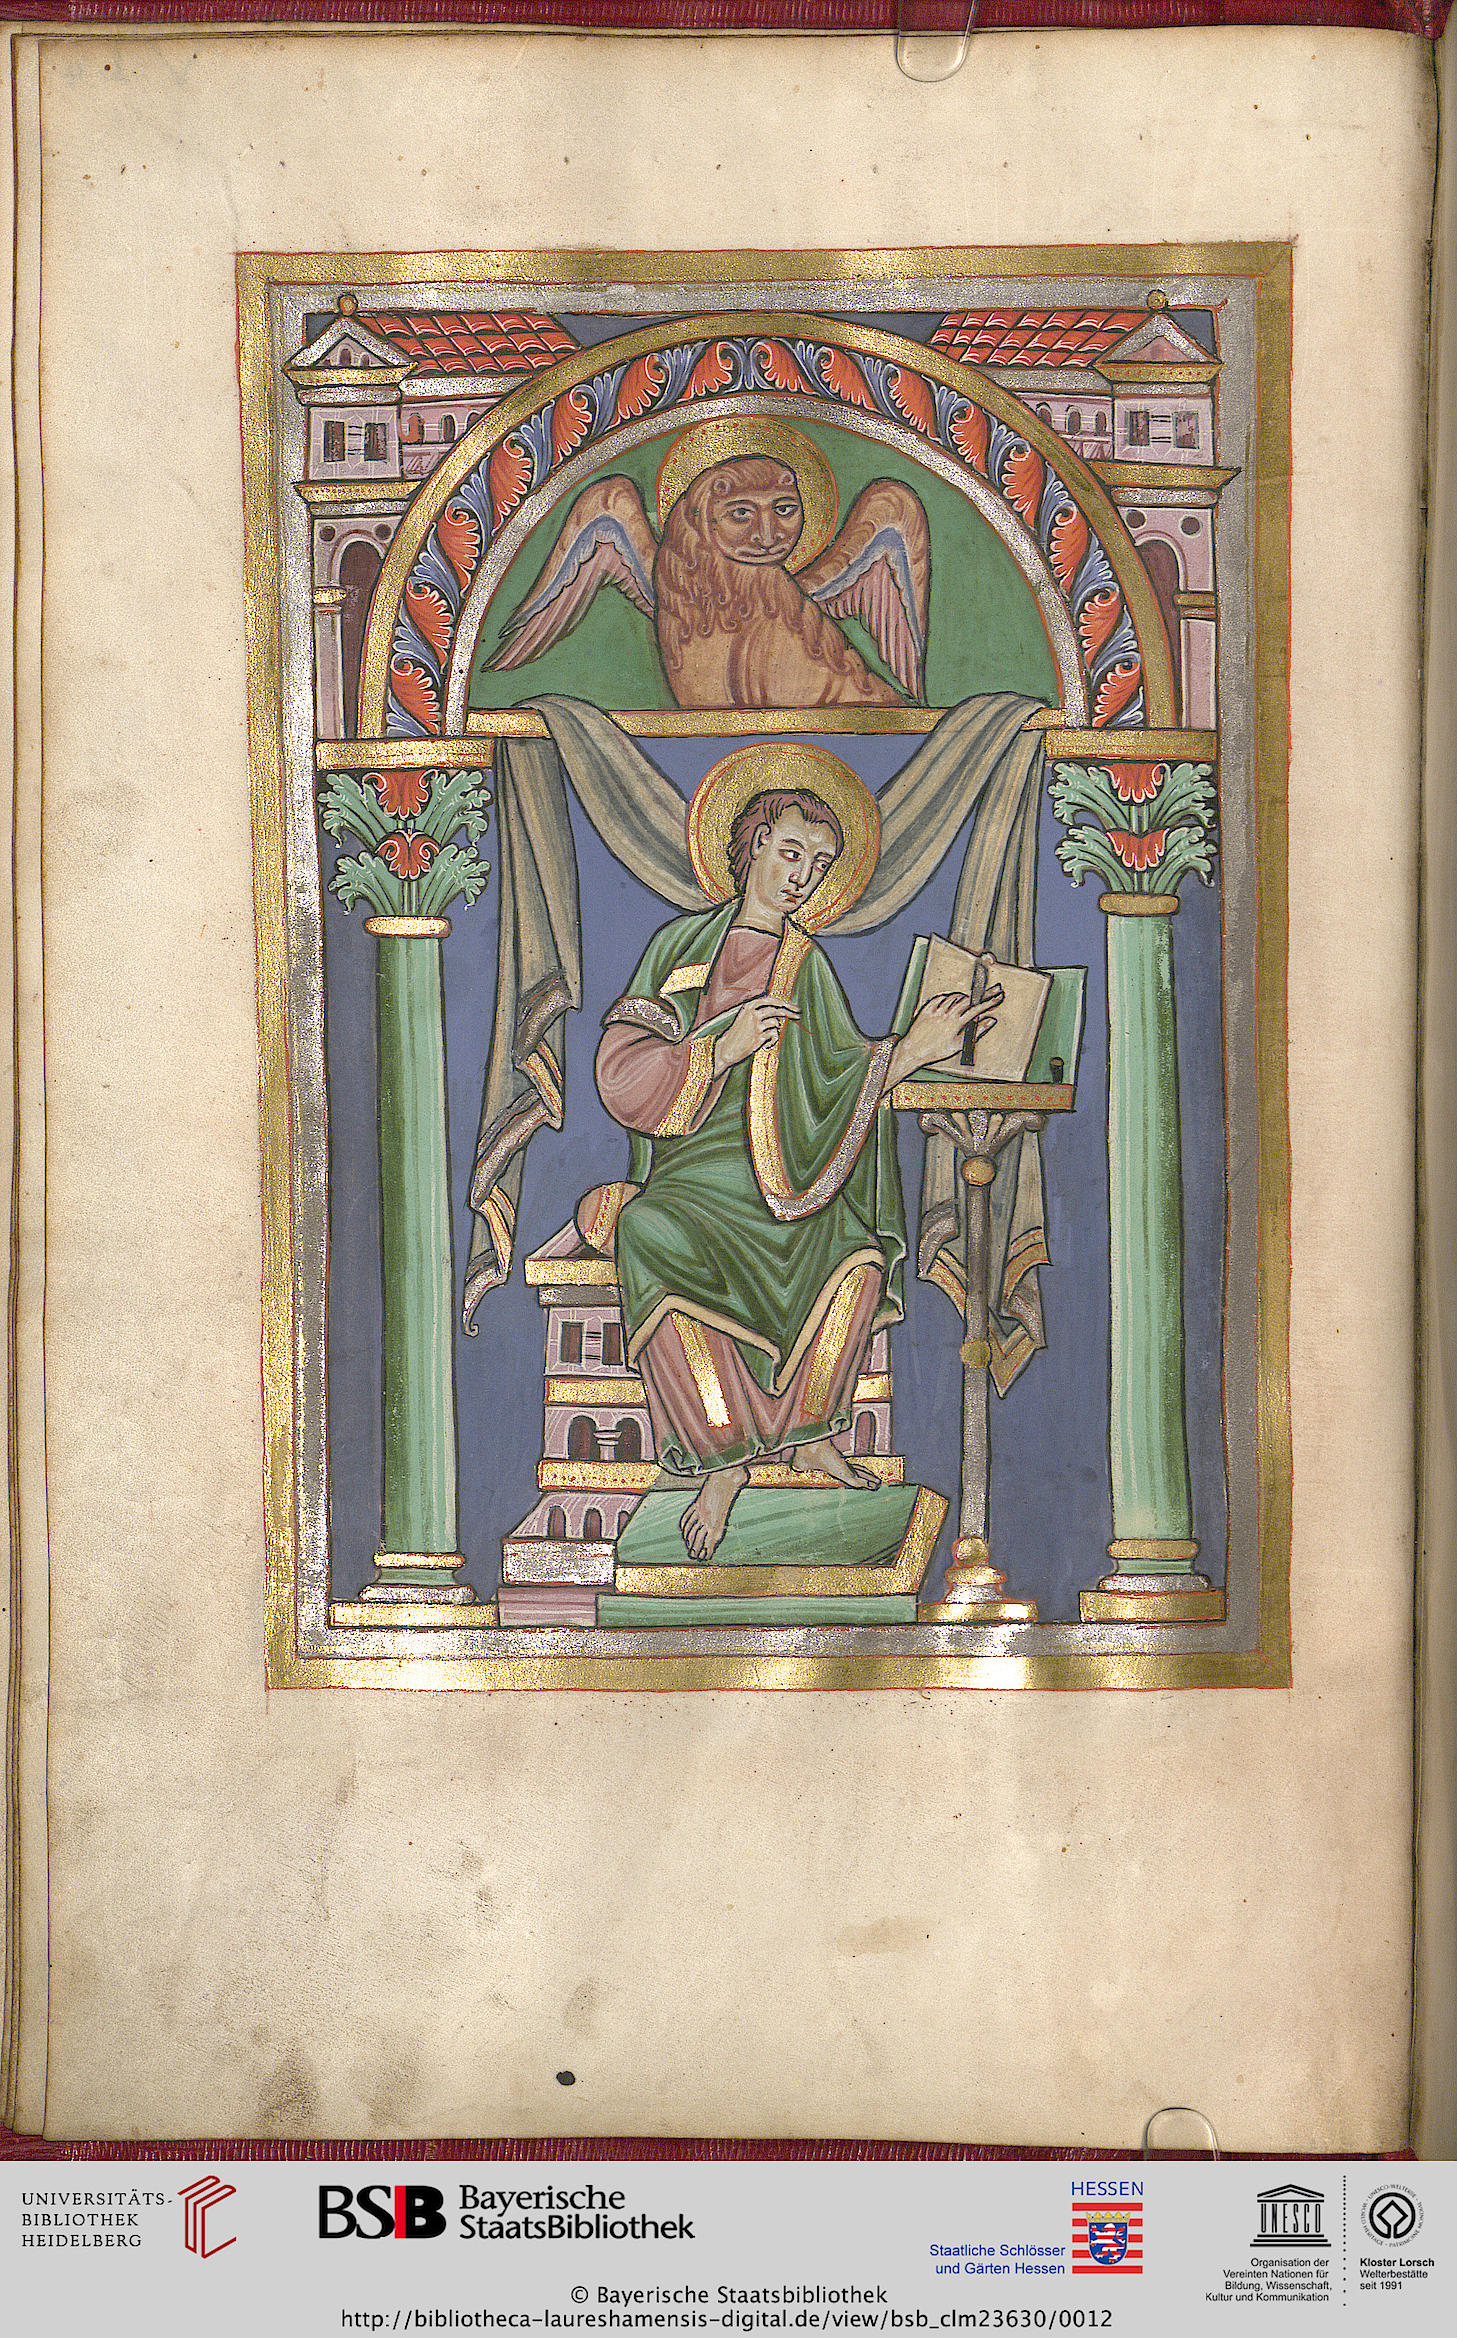 UNIVERSITÄTS-
BIBLIOTHEK
HEIDELBERG
BSB Bayerische
StaatsBibliothek
HESSEN
Staatliche Schlösser
und Gärten Hessen
UNESCO
Organisation der
Vereinten Nationen für
Bildung, Wissenschaft,
Kultur und Kommunikation
Kloster Lorsch
Welterbestätte
seit 1991
© Bayerische Staatsbibliothek
http://bibliotheca-laureshamensis-digital.de/view/bsb_clm23630/0012